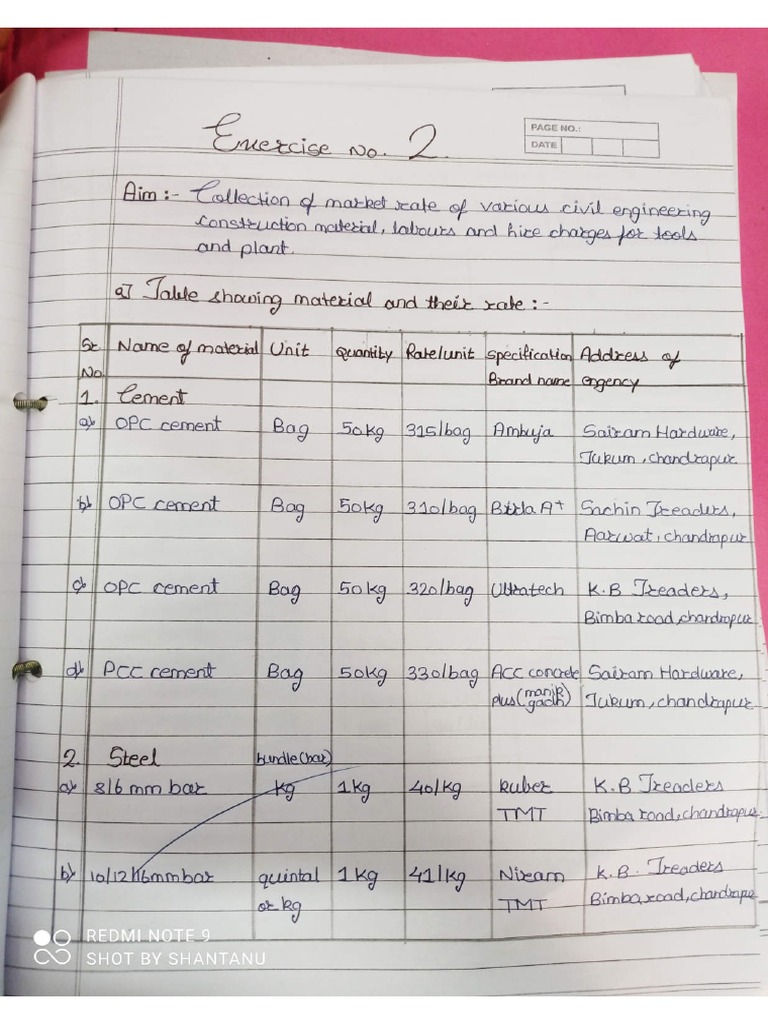 Exercise No. 2
PAGE NO.:
DATE
Aim :- Collection of market rate of various civil engineering
construction material, labours and hire charges for tools
and plant.
a] Table showing material and their rate :-
Sr. No. Name of material Unit Quantity Rate/unit Specification Brand name Address of engency
1. Cement
a) OPC cement Bag 50kg 315/bag Ambuja Sairam Hardware,
Tukum, chandrapur
b) OPC cement Bag 50kg 310/bag Birla A+ Sachin Treaders,
Aarwat, chandrapur
c) OPC cement Bag 50kg 320/bag Ultratech K.B Treaders,
Bimba road, chandrapur
d) PCC cement Bag 50kg 330/bag ACC concrete Sairam Hardware,
plus (manik gadh) Tukum, chandrapur
2. Steel bundle (bar)
a) 8/6 mm bar kg 1kg 40/kg kuber K.B Treaders
TMT Bimba road, chandrapur.
b) 10/12/16mm bar quintal 1kg 41/kg Niram K.B. Treaders
or kg TMT Bimba road, chandrapur
REDMI NOTE 9
SHOT BY SHANTANU